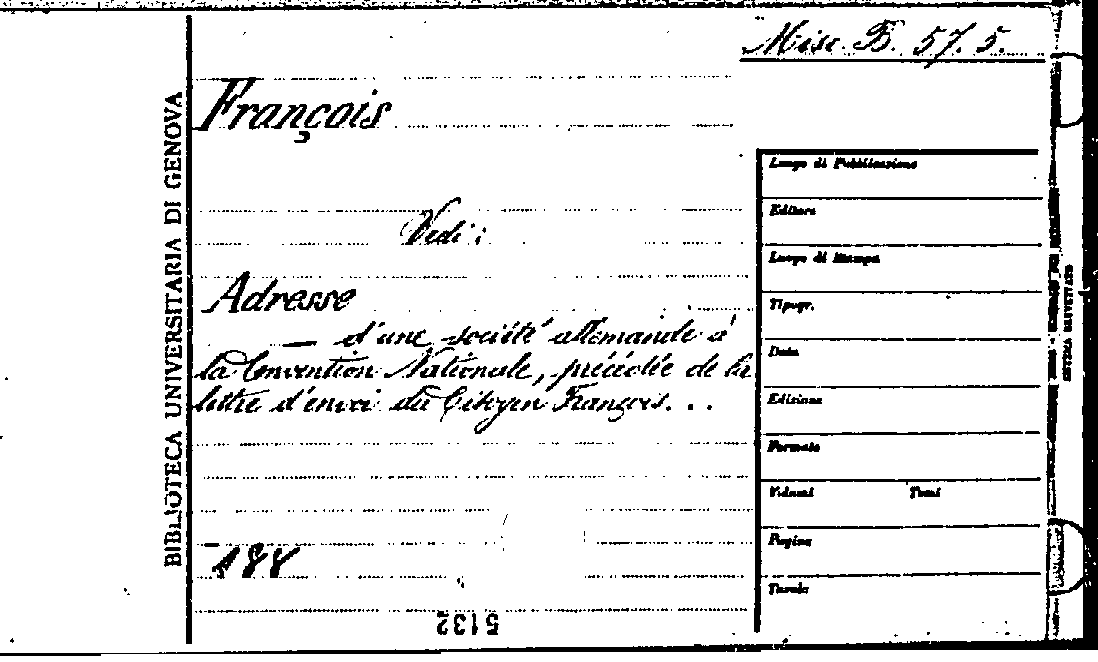 Misc. B. 57. 5.
François
Vedi:
Adresse
— d'une société allemande à
la Convention Nationale, précédée de la
lettre d'envoi du Citoyen François...
188
5132
BIBLIOTECA UNIVERSITARIA DI GENOVA
Luogo di Pubblicazione
Editore
Luogo di Stampa
Tipogr.
Data
Edizione
Formato
Volumi Tomi
Pagine
Tavole